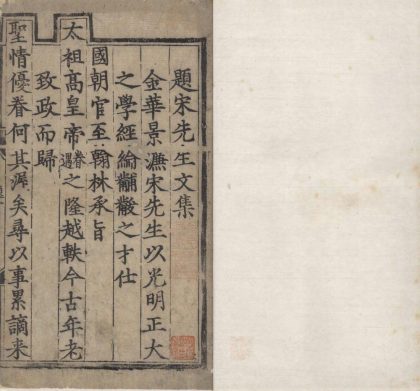 題宋先生文集
金華景濂宋先生以光明正大
之學經綸黼黻之才仕
國朝官至翰林承旨
太祖高皇帝眷遇之隆越軼今古年老
致政而歸
聖情優眷何其渥矣尋以事累謫来